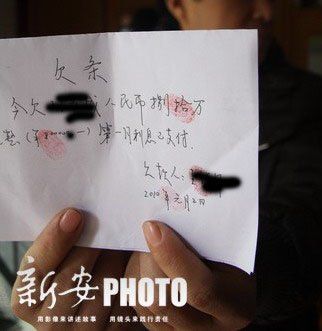 欠条
今欠 人民币捌拾万
(¥ 第一月利息已支付.
欠款人:
2010年元月2日
新安PHOTO
用影像来讲述故事 用镜头来践行责任